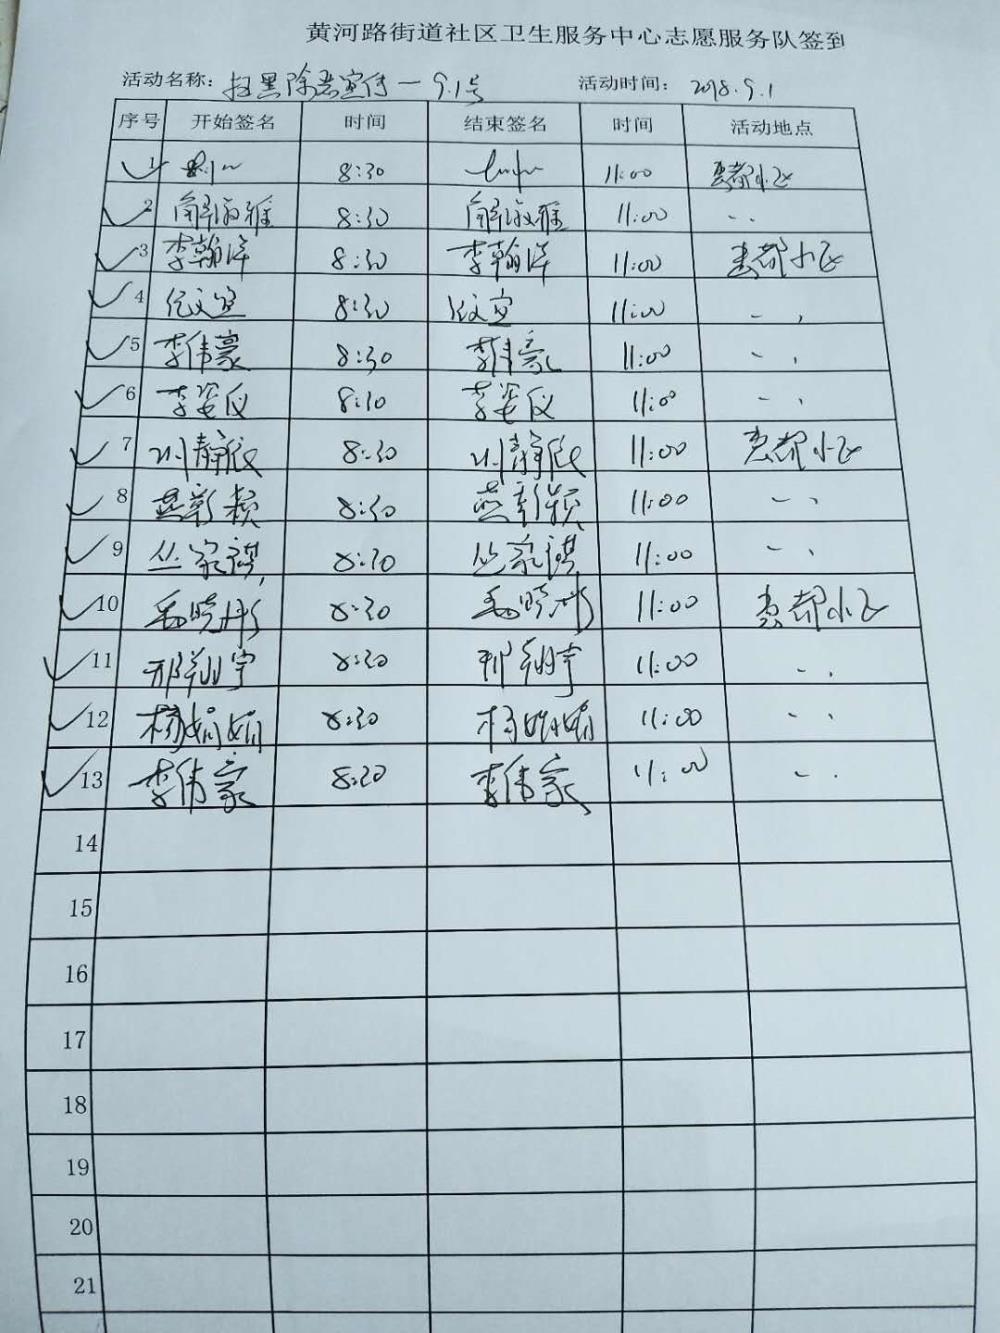 黄河路街道社区卫生服务中心志愿服务队签到
活动名称: 扫黑除恶宣传一9.1号 活动时间: 2018.9.1
序号 开始签名 时间 结束签名 时间 活动地点
1 8:30 11:00 惠都小区
2 解淑雅 8:30 解淑雅 11:00 、、
3 李翰洋 8:30 李翰洋 11:00 惠都小区
4 任文宣 8:30 任文宣 11:00 、、
5 李伟豪 8:30 李伟豪 11:00 、、
6 李姿仪 8:30 李姿仪 11:00 、、
7 静 8:30 静 11:00 惠都小区
8 燕新颖 8:30 燕新颖 11:00 、、
9 丛家祺 8:30 丛家祺 11:00 、、
10 毛晓彤 8:30 毛晓彤 11:00 惠都小区
11 邢翔宇 8:30 邢翔宇 11:00 、、
12 杨娟娟 8:30 杨娟娟 11:00 、、
13 李伟家 8:30 李伟家 11:00 、、
14
15
16
17
18
19
20
21